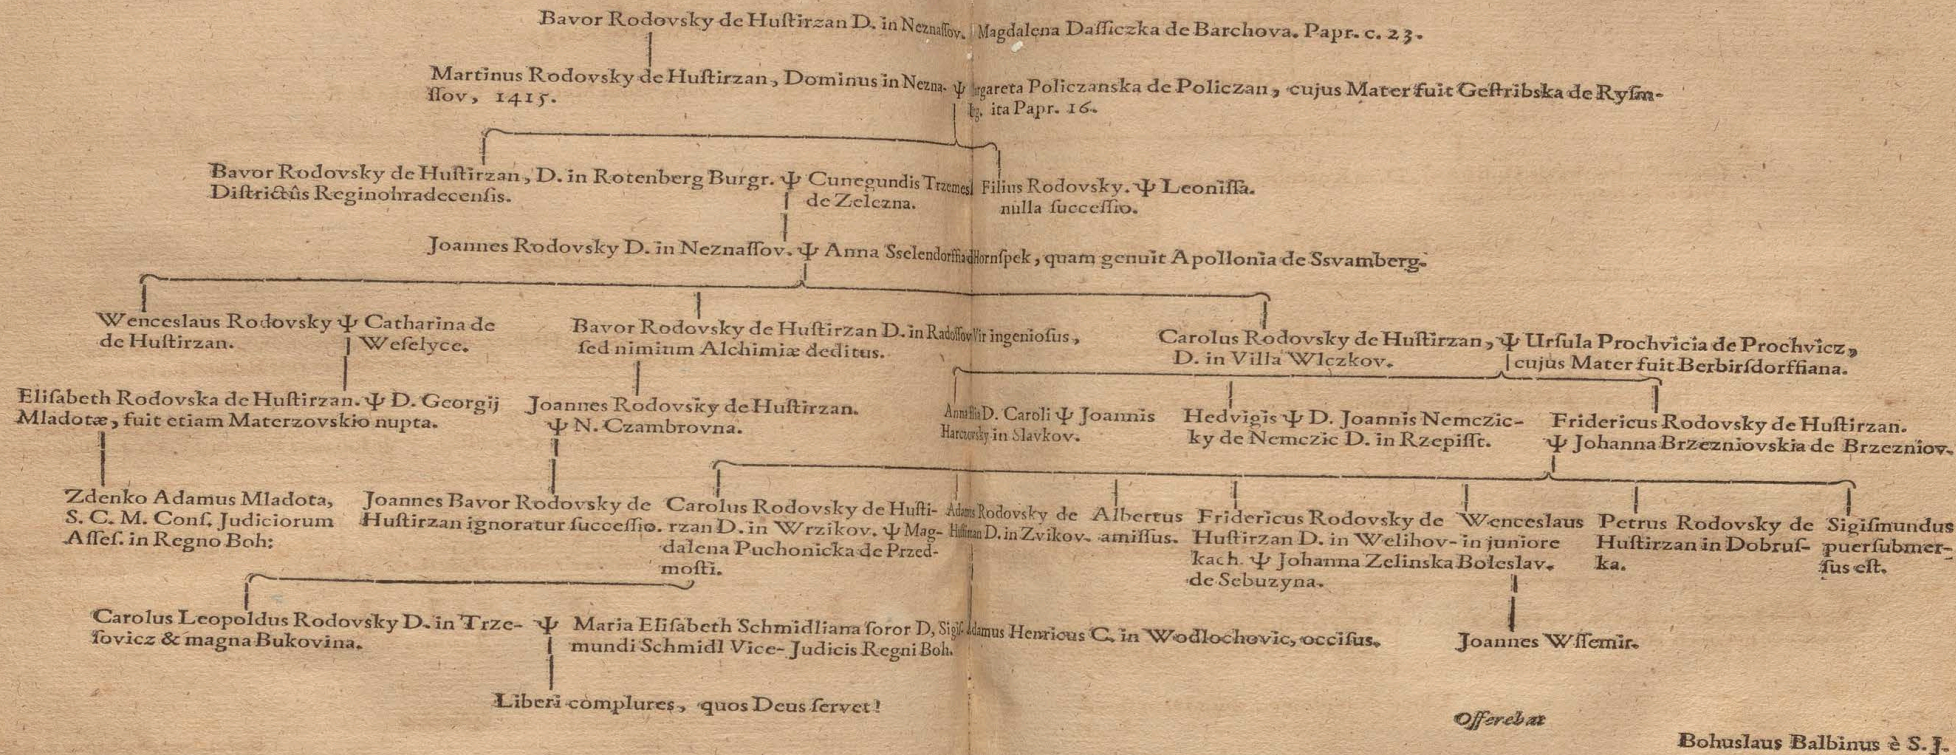 Bavor Rodovsky de Huſtirzan D. in Neznaſſov. Magdalena Daſſiczka de Barchova. Papr. c. 23.
Martinus Rodovsky de Huſtirzan, Dominus in Nezna- Ψ rgareta Policzanska de Policzan, cujus Mater fuit Geſtribska de Ryſm-
ſſov, 1415. ita Papr. 16.
Bavor Rodovsky de Huſtirzan, D. in Rotenberg Burgr. Ψ Cunegundis Trzemesl
Diſtrictûs Reginohradecenſis. de Zelezna.
Filius Rodovsky. Ψ Leoniſſa.
nulla ſucceſſio.
Joannes Rodovsky D. in Neznaſſov. Ψ Anna Hornſpek, quam genuit Apollonia de Ssvamberg.
Wenceslaus Rodovsky Ψ Catharina de
de Huſtirzan. Weſelyce.
Bavor Rodovsky de Huſtirzan D. in Radoſſov Vir ingenioſus,
ſed nimium Alchimiæ deditus.
Carolus Rodovsky de Huſtirzan, Ψ Urſula Prochvicia de Prochvicz,
D. in Villa Wlczkov. cujus Mater fuit Berbirſdorffiana.
Eliſabeth Rodovska de Huſtirzan. Ψ D. Georgij
Mladotæ, fuit etiam Materzovskio nupta.
Joannes Rodovsky de Huſtirzan.
Ψ N. Czambrovna.
Anna filia D. Caroli Ψ Joannis
in Slavkov.
Hedvigis Ψ D. Joannis Nemczic-
ky de Nemczic D. in Rzepiſſt.
Fridericus Rodovsky de Huſtirzan.
Ψ Johanna Brzezniovskia de Brzezniov.
Zdenko Adamus Mladota,
S. C. M. Conſ. Judiciorum
Aſſeſ. in Regno Boh:
Joannes Bavor Rodovsky de
Huſtirzan ignoratur ſucceſſio.
Carolus Rodovsky de Huſti-
rzan D. in Wrzikov. Ψ Mag-
dalena Puchonicka de Przed-
moſti.
Adamus Rodovsky de
D. in Zvikov.
Albertus
amiſſus.
Fridericus Rodovsky de
Huſtirzan D. in Welihov-
kach. Ψ Johanna Zelinska
de Sebuzyna.
Wenceslaus
in juniore
Boleslav.
Petrus Rodovsky de
Huſtirzan in Dobruſ-
ka.
Sigiſmundus
puer ſubmer-
ſus eſt.
Carolus Leopoldus Rodovsky D. in Trze-
ſovicz & magna Bukovina.
Ψ Maria Eliſabeth Schmidliana ſoror D, Sigiſ-
mundi Schmidl Vice-Judicis Regni Boh.
Adamus Henricus C. in Wodlochovic, occiſus.
Joannes Wſſemir.
Liberi complures, quos Deus ſervet!
Offerebat
Bohuslaus Balbinus è S. J.